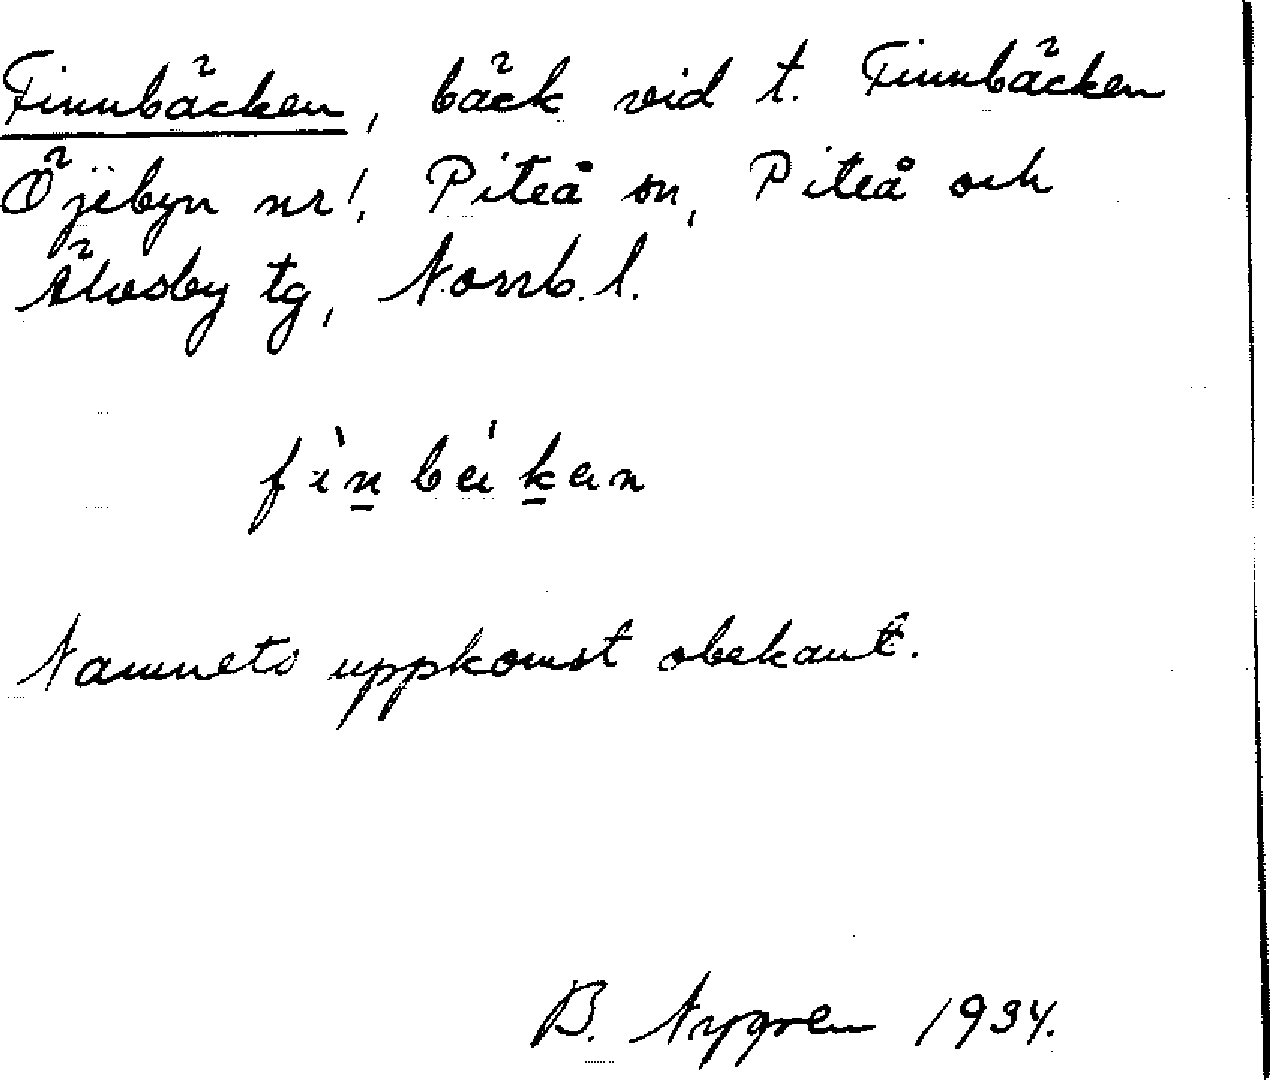 Finnbäcken, bäck vid t. Finnbäcken
Öjebyn nr 1, Piteå sn, Piteå och
Älvsby tg, Norrb. l.
fìnbákan
Namnets uppkomst obekant.
B. Nygren 1934.